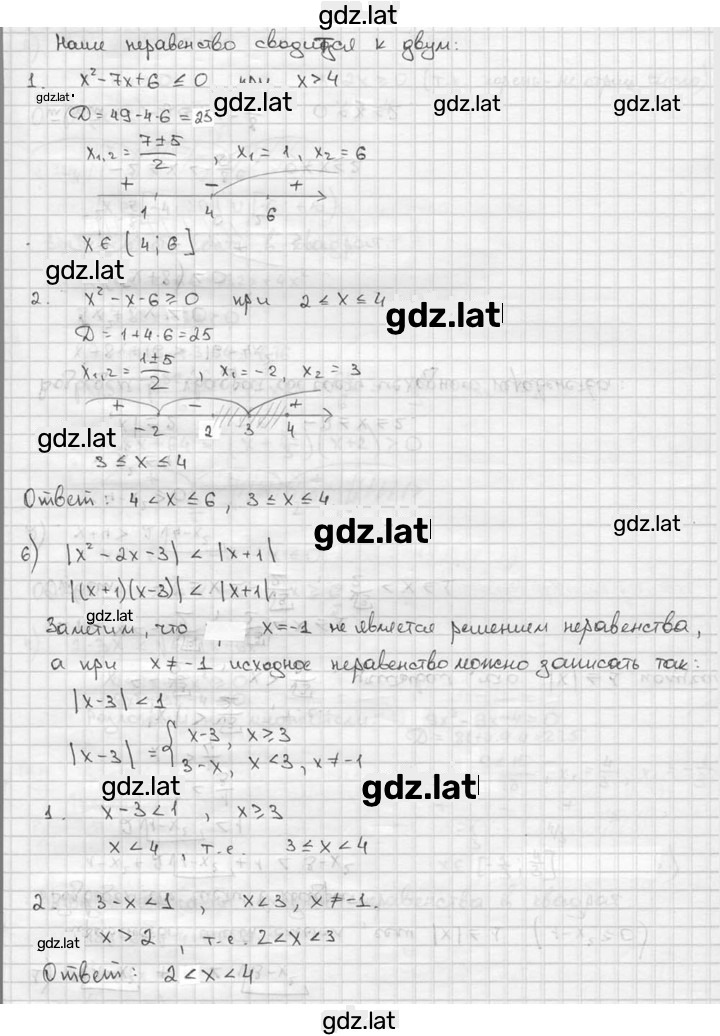 gdz.lat
Наше неравенство сводится к двум:
1. x² - 7x + 6 ≤ 0 или x > 4
gdz.lat gdz.lat gdz.lat gdz.lat
D = 49 - 4·6 = 25
x₁,₂ = (7±5)/2 , x₁ = 1, x₂ = 6
+ - +
1 4 6
x ∈ [4; 6]
gdz.lat
2. x² - x - 6 ≥ 0 при 2 ≤ x ≤ 4
gdz.lat
D = 1 + 4·6 = 25
x₁,₂ = (1±5)/2 , x₁ = -2, x₂ = 3
+ - +
-2 2 3 4
gdz.lat
3 ≤ x ≤ 4
Ответ: 4 < x ≤ 6, 3 ≤ x ≤ 4
gdz.lat gdz.lat
б) |x² - 2x - 3| < |x + 1|
|(x+1)(x-3)| < |x+1|
gdz.lat
Заметим, что , x = -1 не является решением неравенства,
а при x ≠ -1 исходное неравенство можно записать так:
|x-3| < 1
|x-3| = { x-3, x ≥ 3
3-x, x < 3, x ≠ -1
gdz.lat gdz.lat
1. x - 3 < 1 , x ≥ 3
x < 4 , т.е. 3 ≤ x < 4
2. 3 - x < 1 , x < 3, x ≠ -1.
gdz.lat
x > 2 , т.е. 2 < x < 3
Ответ: 2 < x < 4
gdz.lat